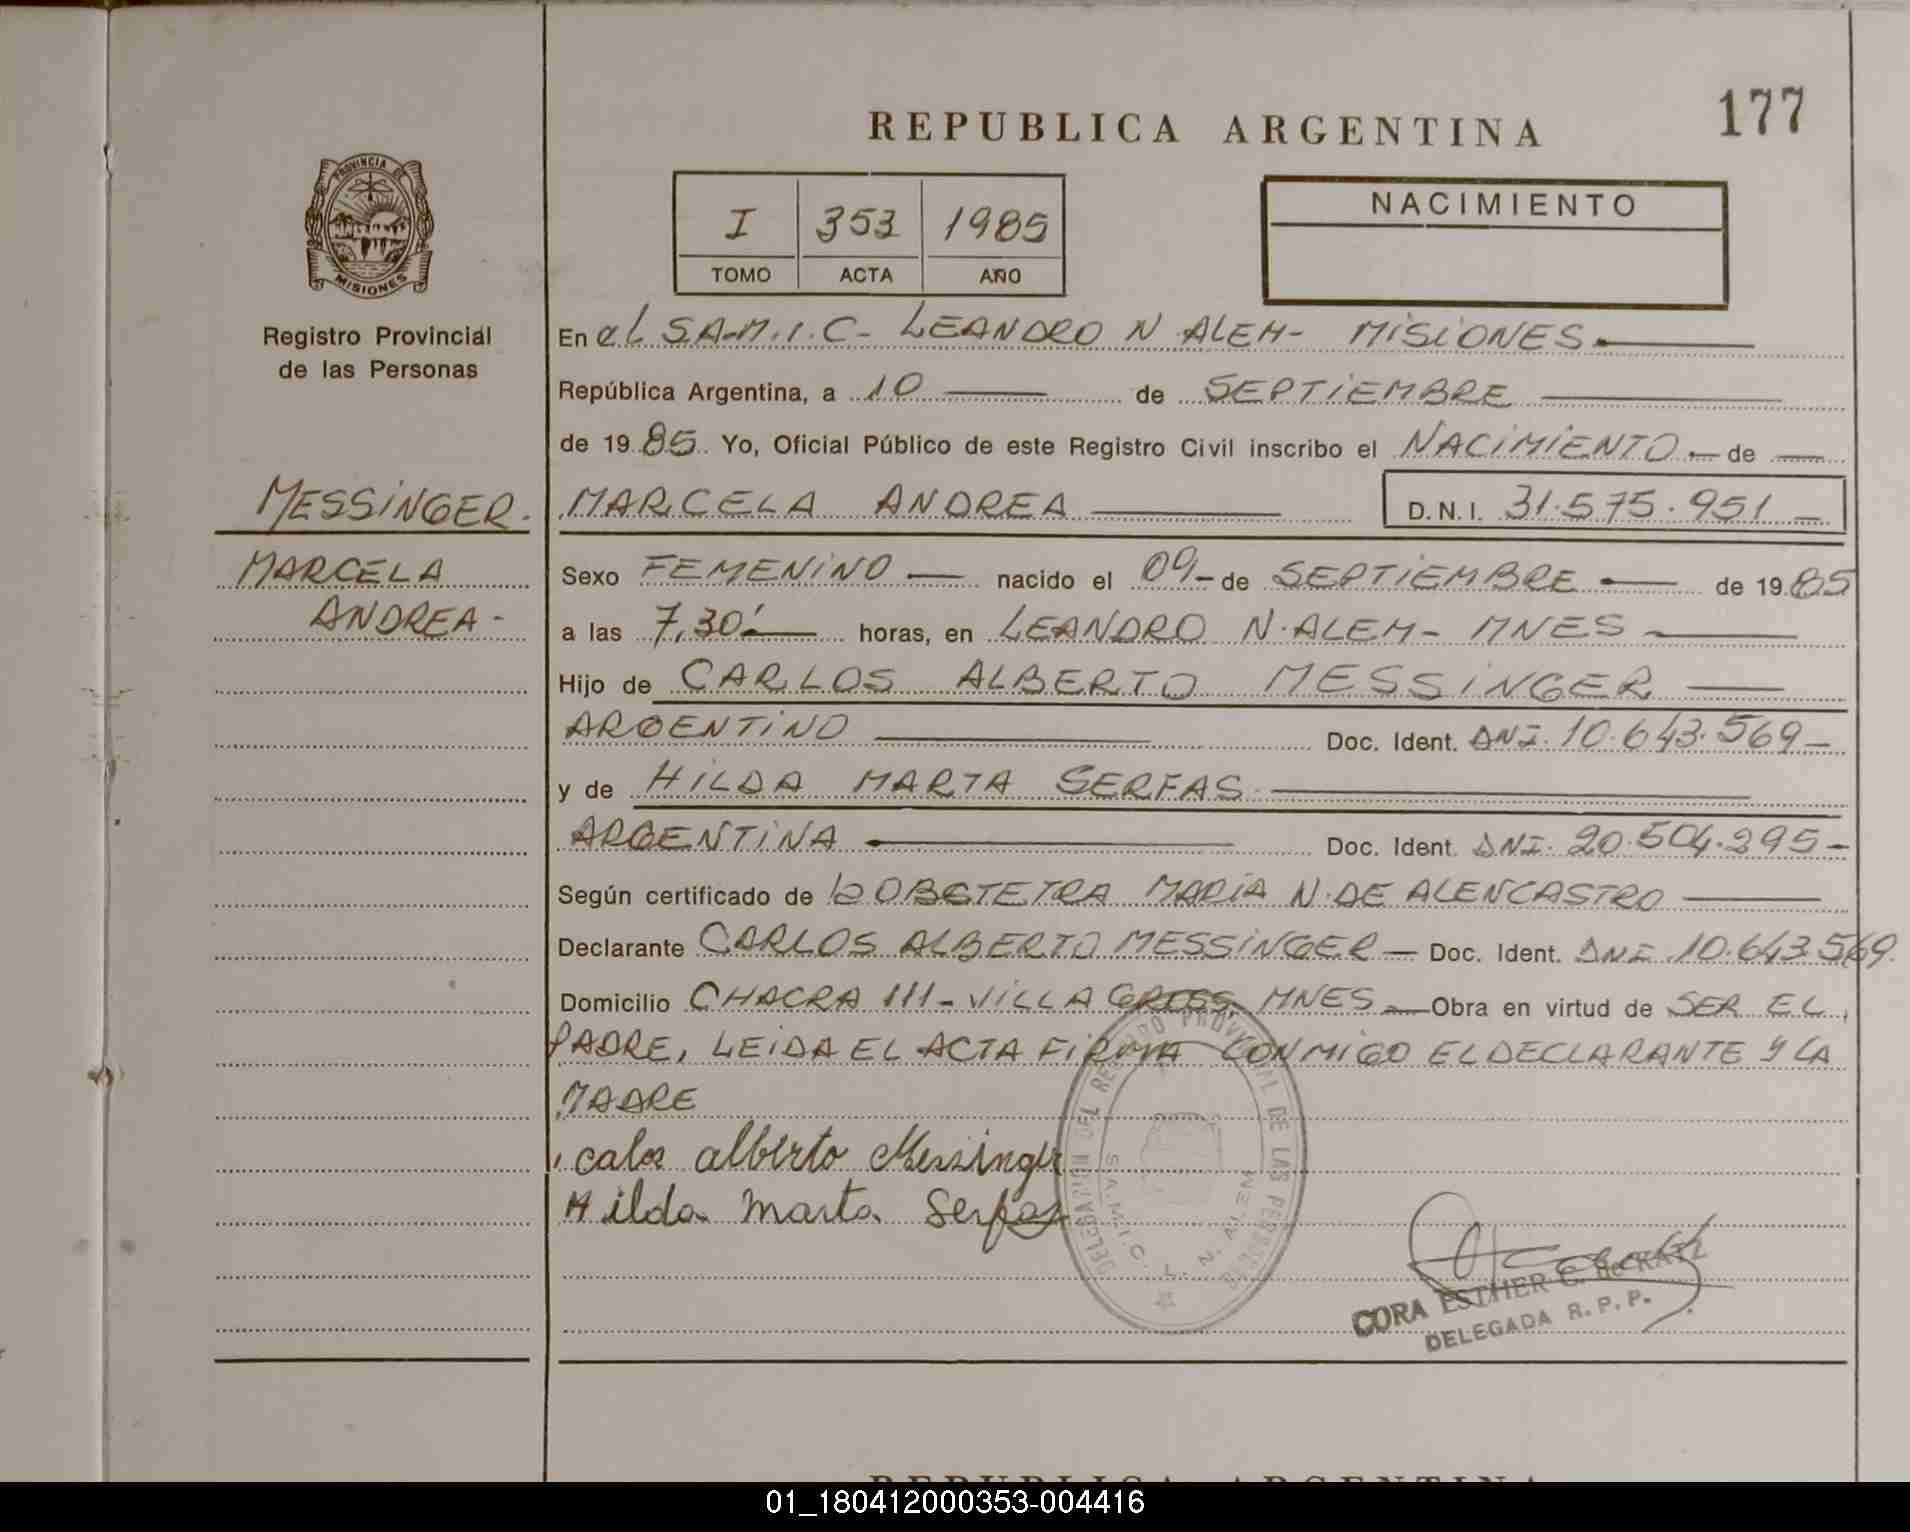 177
REPUBLICA ARGENTINA
PROVINCIA DE
MISIONES
Registro Provincial
de las Personas
I 353 1985
TOMO ACTA AÑO
NACIMIENTO
En el S.A.M.I.C- LEANDRO N. ALEM- MISIONES
República Argentina, a 10 de SEPTIEMBRE
de 1985. Yo, Oficial Público de este Registro Civil inscribo el NACIMIENTO de
MESSINGER. MARCELA ANDREA D.N.I. 31.575.951
MARCELA
ANDREA-
Sexo FEMENINO nacido el 09 de SEPTIEMBRE de 1985
a las 7,30' horas, en LEANDRO N. ALEM- MNES
Hijo de CARLOS ALBERTO MESSINGER
ARGENTINO Doc. Ident. DNI. 10.643.569-
y de HILDA MARTA SERFAS
ARGENTINA Doc. Ident. DNI. 20.504.295-
Según certificado de LA OBSTETRA MARIA N. DE ALENCASTRO
Declarante CARLOS ALBERTO MESSINGER Doc. Ident. DNI 10.643.569.
Domicilio CHACRA 111- VILLA GROSS, MNES Obra en virtud de SER EL
PADRE, LEIDA EL ACTA FIRMA CONMIGO EL DECLARANTE Y LA
MADRE
calos alberto Messinger
Hilda Marta Serfas
DELEGACION DEL REGISTRO PROVINCIAL DE LAS PERSONAS
S.A.M.I.C. L. N. ALEM
CORA ESTHER C. de RATZ
DELEGADA R.P.P.
REPUBLICA ARGENTINA
01_180412000353-004416